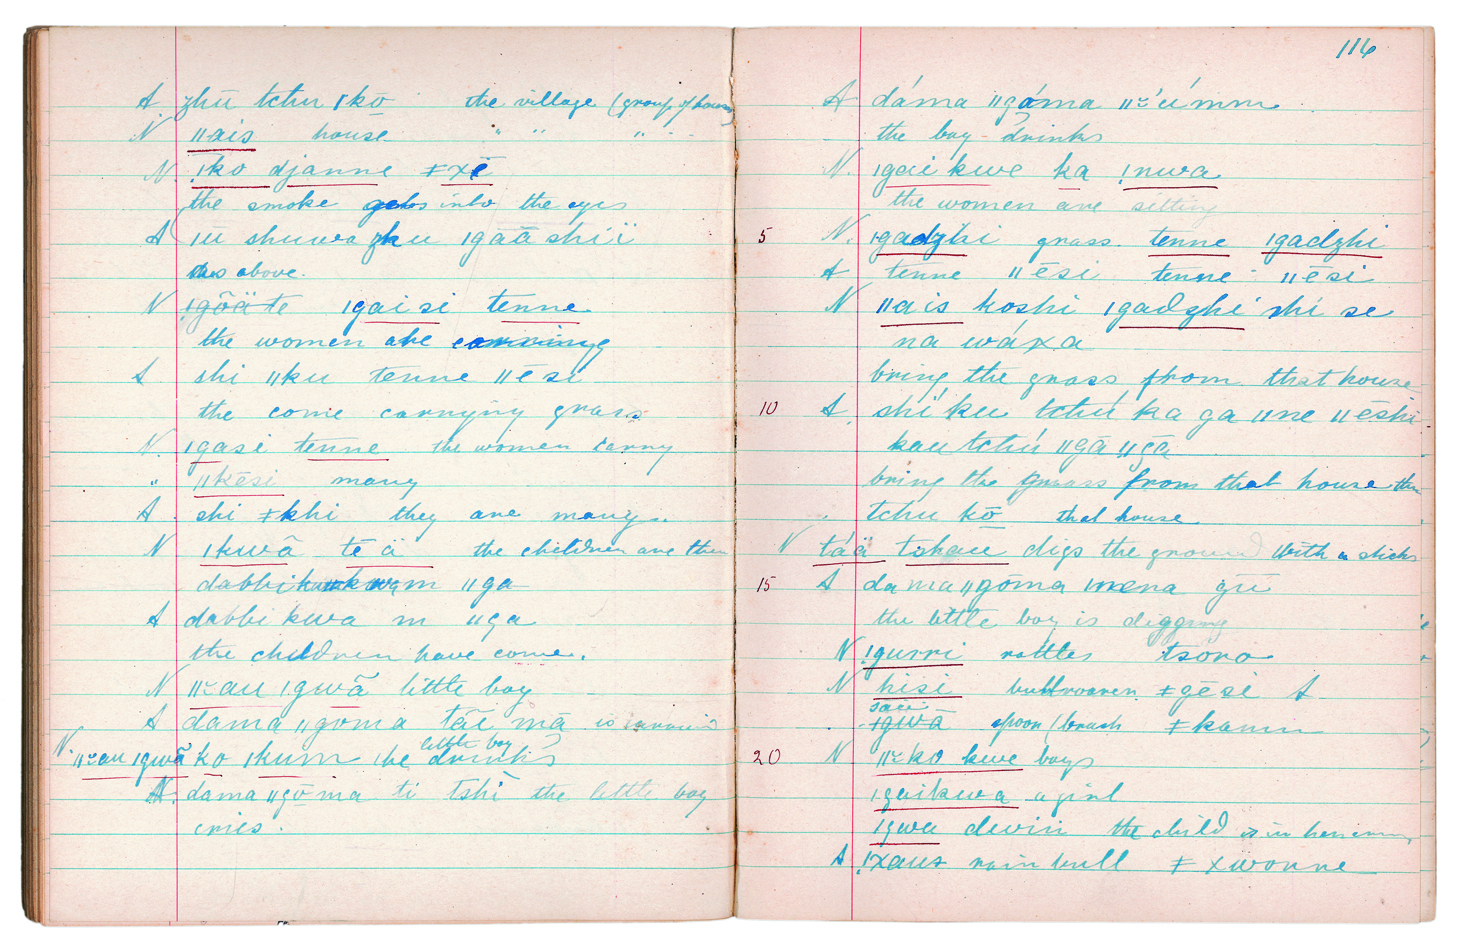 A zhū tchu ǀkō the village (group of houses)
N ǁais house " " "
N. ǃko djanne ǂxē
the smoke gets into the eyes
A ǀū shuwa zku ǀgāā shïï
as above.
N ǃgôäte ǀgaisi tenne
the women are carrying
A shi ǁku tenne ǁēsi
the come carryiny grass
N. ǀgasi tenne the women carry
" ǁkēsi many
A shi ǂkhi they are many.
N ǀkwâ tē ä the children are
dabbi m ǁga
A dabbi kwa m ǁga
the children have come.
N ǁ˜au ǀgwā little boy
A dama ǁgoma tāi mā is
little boy
N. ǁ˜au ǀgwā ko ǀkum the drinks
A. dama ǁgōma ti tshi the little boy
cries.
116
A dáma ǁgóma ǁ˜úmm
the boy drinks
N. ǀgaikwe ka ǃnwa
the women are sitting
5 N. ǀgadzhi grass. tenne ǀgadzhi
A tenne ǁēsi tenne ǁēsi
N ǁais koshi ǀgadzhi shi se
na wáxa
bring the grass from that house
10 A. shi ku tchú ka ga ǁne ǁēshi
kau tchú ǁgā ǁgā
bring the grass from that house
tchu kō that house
N táä tshau digs the ground with a sticks
15 A dama ǁgōma ǀnena gū
the little boy is digging
N ǃgurri rattles tsoro
N hisi bullroarer ǂgēsi A
sāu
ǂgwā spoon (brush ǂkamm
20 N ǁ˜ko kwe boys
ǀgaikwa a girl
ǀgwa the child is in
A ǃxaus rain bull ǂ xworre